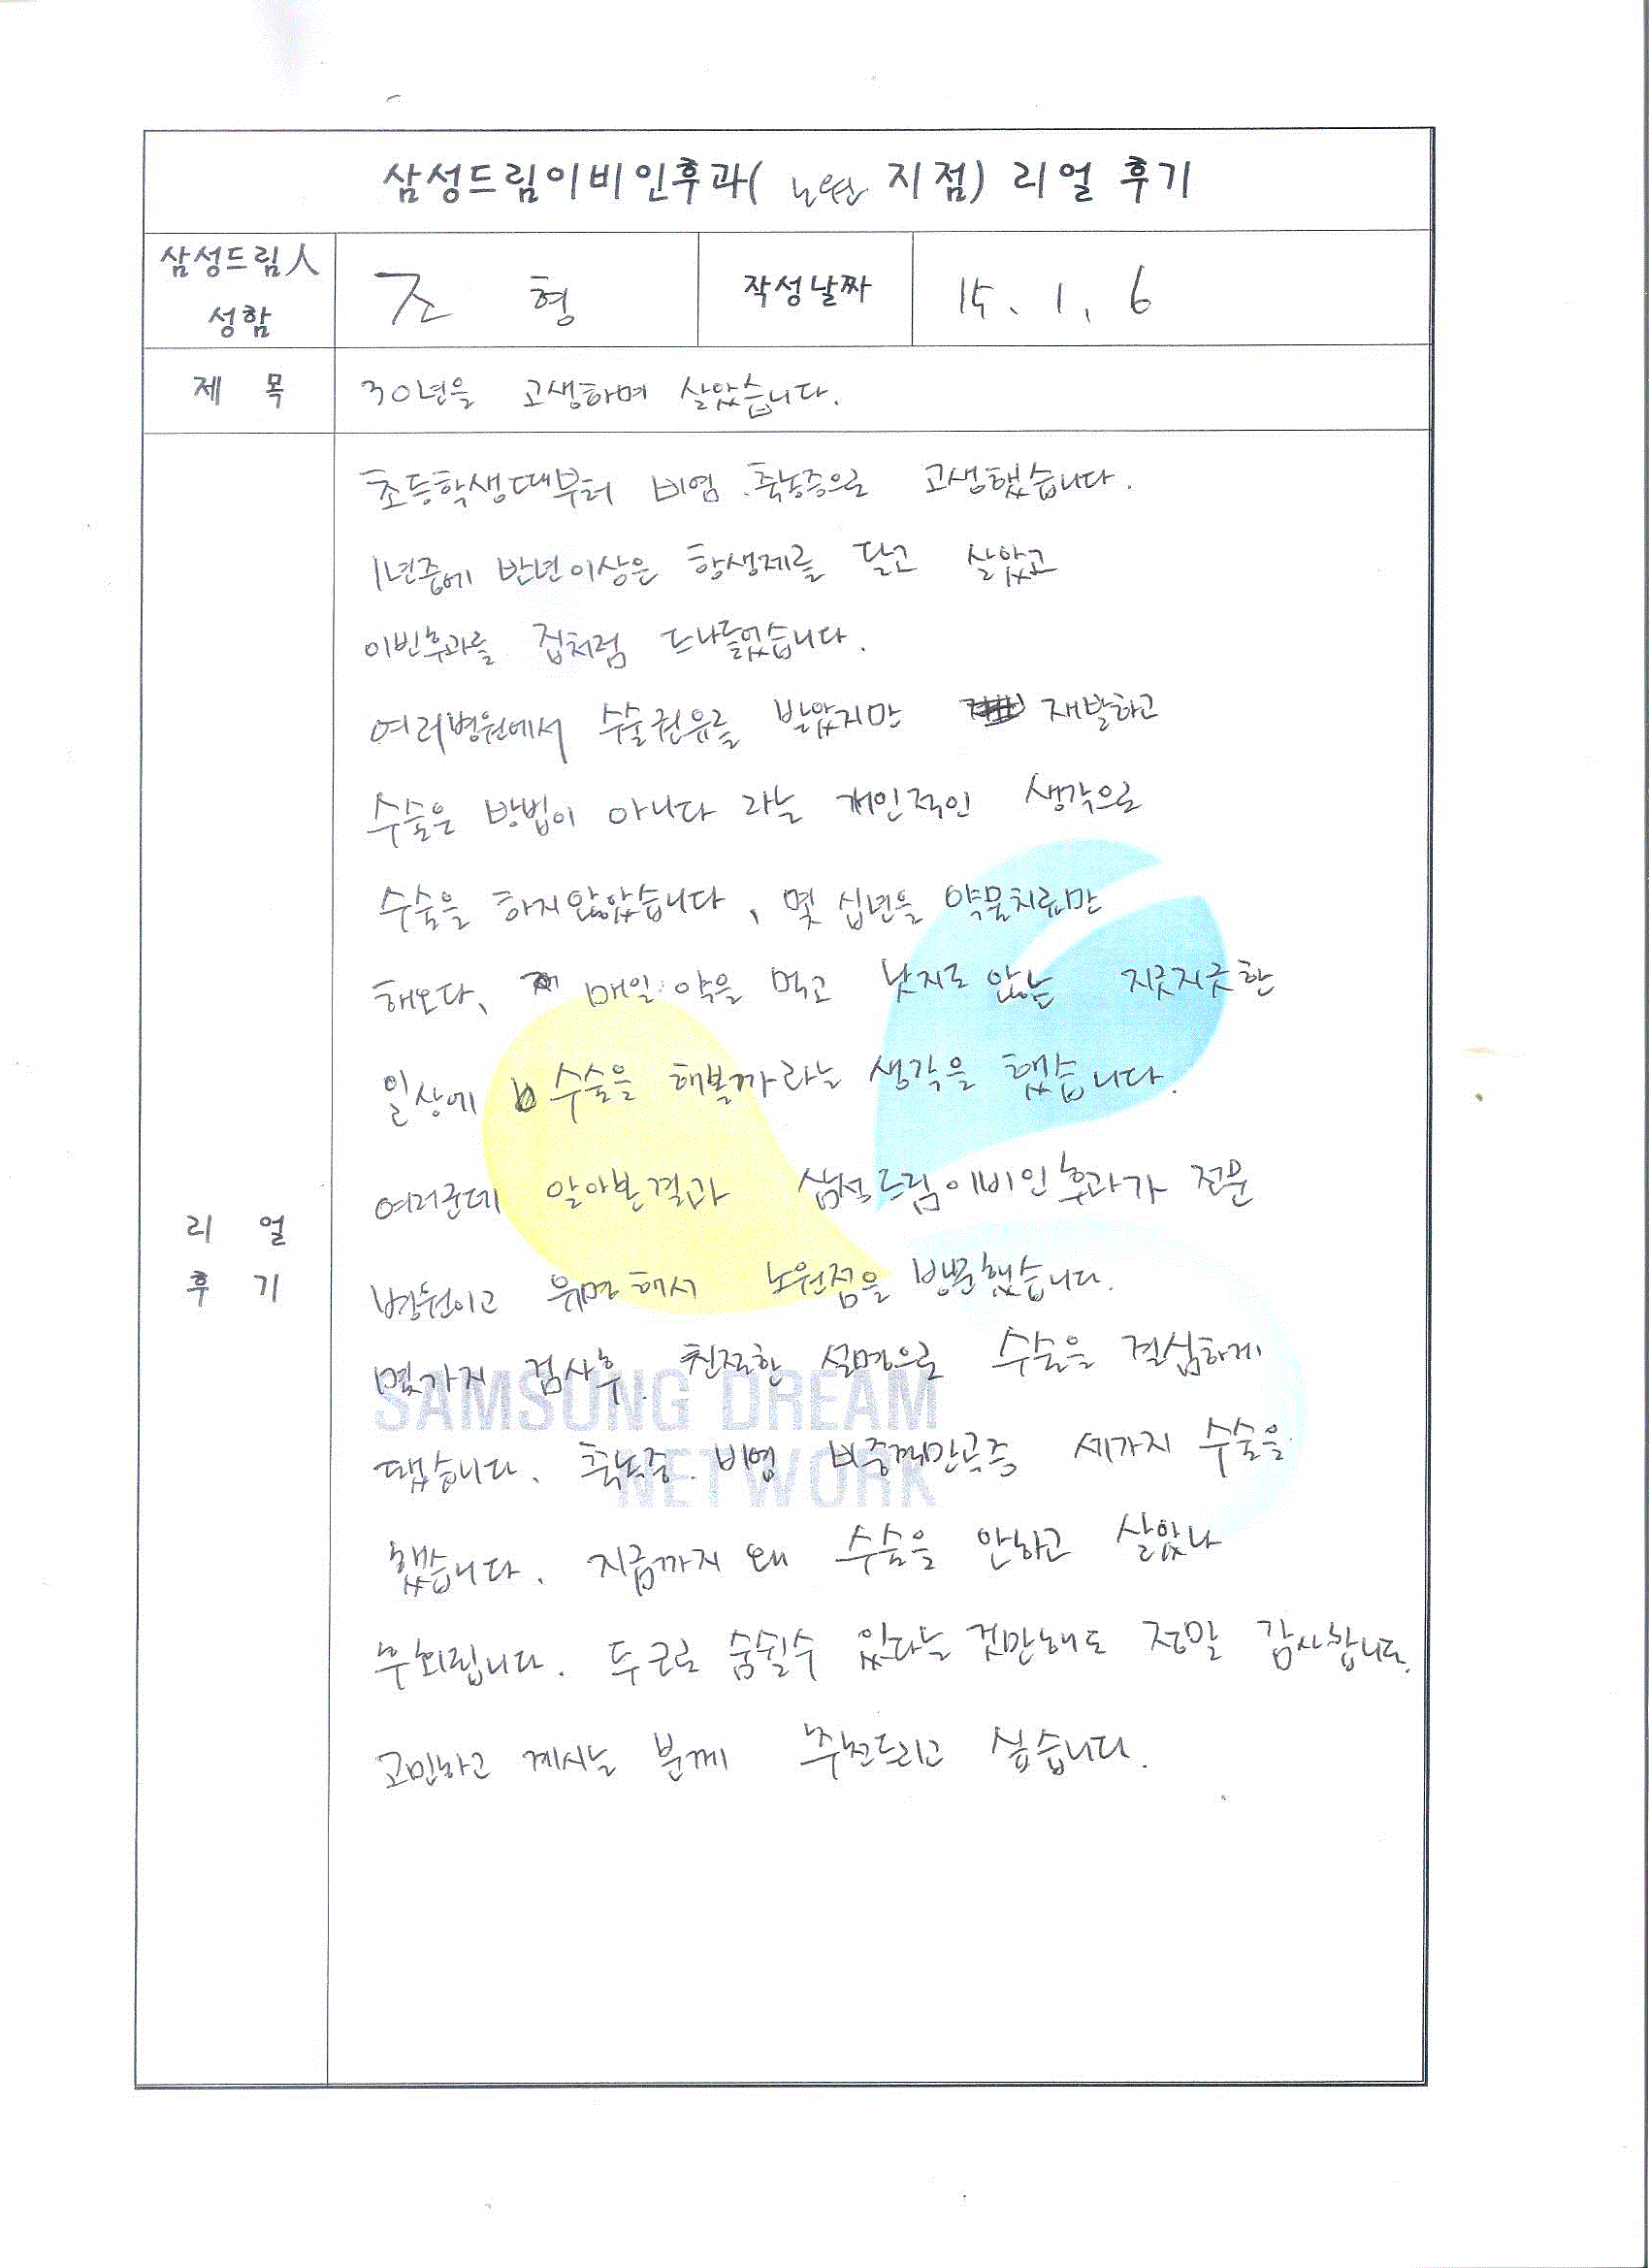 삼성드림이비인후과( 노원 지점) 리얼 후기
삼성드림人
성함
조 형
작성날짜
15. 1. 6
제 목
30년을 고생하며 살았습니다.
리 얼
후 기
초등학생때부터 비염.축농증으로 고생했습니다.
1년중에 반년이상은 항생제를 달고 살았고
이빈후과를 집처럼 드나들었습니다.
여러병원에서 수술권유를 받았지만 재발하고
수술은 방법이 아니다 라는 개인적인 생각으로
수술을 하지않았습니다, 몇 십년을 약물치료만
해오다, 매일 약을 먹고 낫지도 않는 지긋지긋한
일상에 수술을 해볼까라는 생각을 했습니다.
여러군데 알아본결과 삼성드림이비인후과가 전문
병원이고 유명해서 노원점을 방문했습니다.
몇가지 검사후 친절한 설명으로 수술을 결심하게
됐습니다. 축농증. 비염 비중격만곡증 세가지 수술을
했습니다. 지금까지 왜 수술을 안하고 살았나
후회됩니다. 두 코로 숨쉴수 있다는 것만해도 정말 감사합니다.
고민하고 계시는 분께 추천드리고 싶습니다.
SAMSUNG DREAM
NETWORK